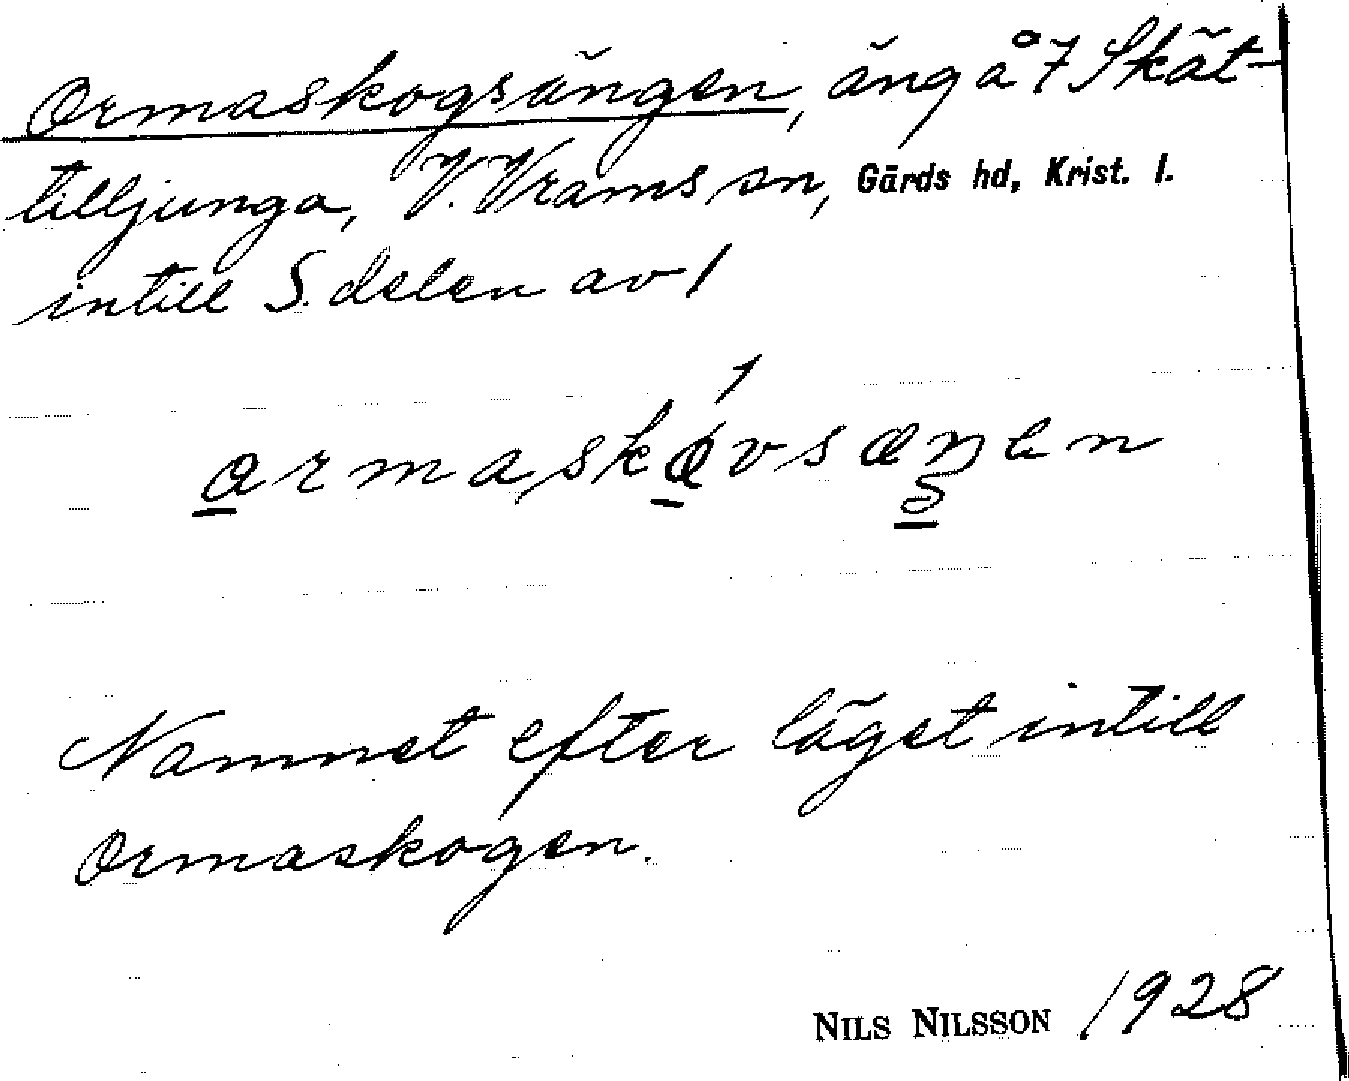 Ormaskogsängen, äng å 7 Skät-
tilljunga, V. Vrams sn, Gärds hd, Krist. l.
intill S. delen av 1
armaskávsæŋen
Namnet efter läget intill
Ormaskogen.
NILS NILSSON 1928